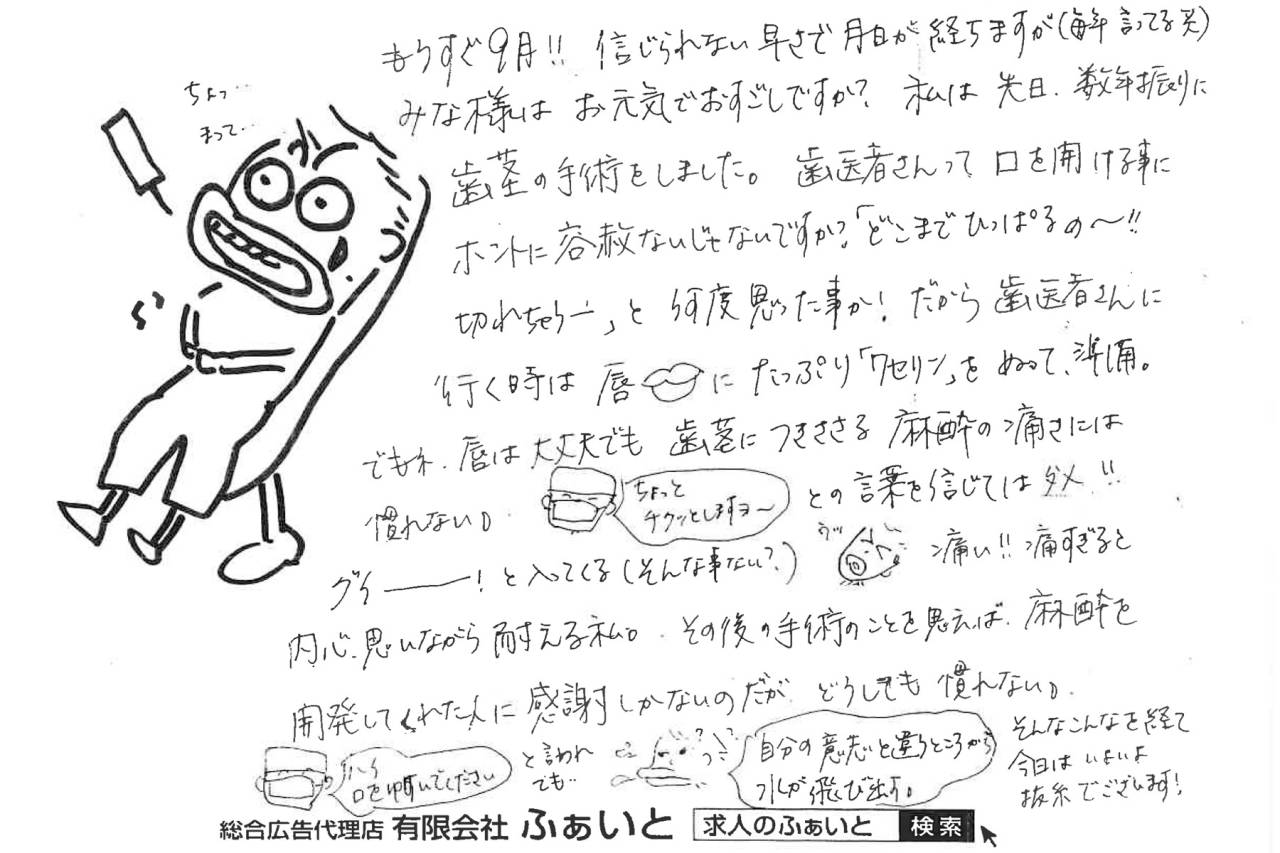 もうすぐ9月!! 信じられない早さで月日が経ちますが(毎年言ってる笑)
ちょっ…
まって…
みな様はお元気でおすごしですか? 私は先日、数年振りに
歯茎の手術をしました。 歯医者さんって口を開ける事に
ホントに容赦ないじゃないですか?「どこまでひっぱるの〜!!
切れちゃうー」と何度思った事か! だから歯医者さんに
行く時は唇にたっぷり「ワセリン」をぬって、準備。
でもネ、唇は大丈夫でも歯茎につきささる麻酔の痛さには
慣れない。
ちょっと
チクッとしますヨ〜
との言葉を信じてはダメ!!
グイー! と入ってくる(そんな事ない?)
ウッ
痛い!! 痛すぎると
内心、思いながら耐える私。その後の手術のことを思えば、麻酔を
開発してくれた人に感謝しかないのだが、どうしても慣れない。
ハーイ
口をゆすいでください
と言われ
でも…
自分の意志と違うところから
水が飛び出す。
そんなこんなを経て
今日はいよいよ
抜糸でございます!
総合広告代理店 有限会社 ふぁいと 求人のふぁいと 検索